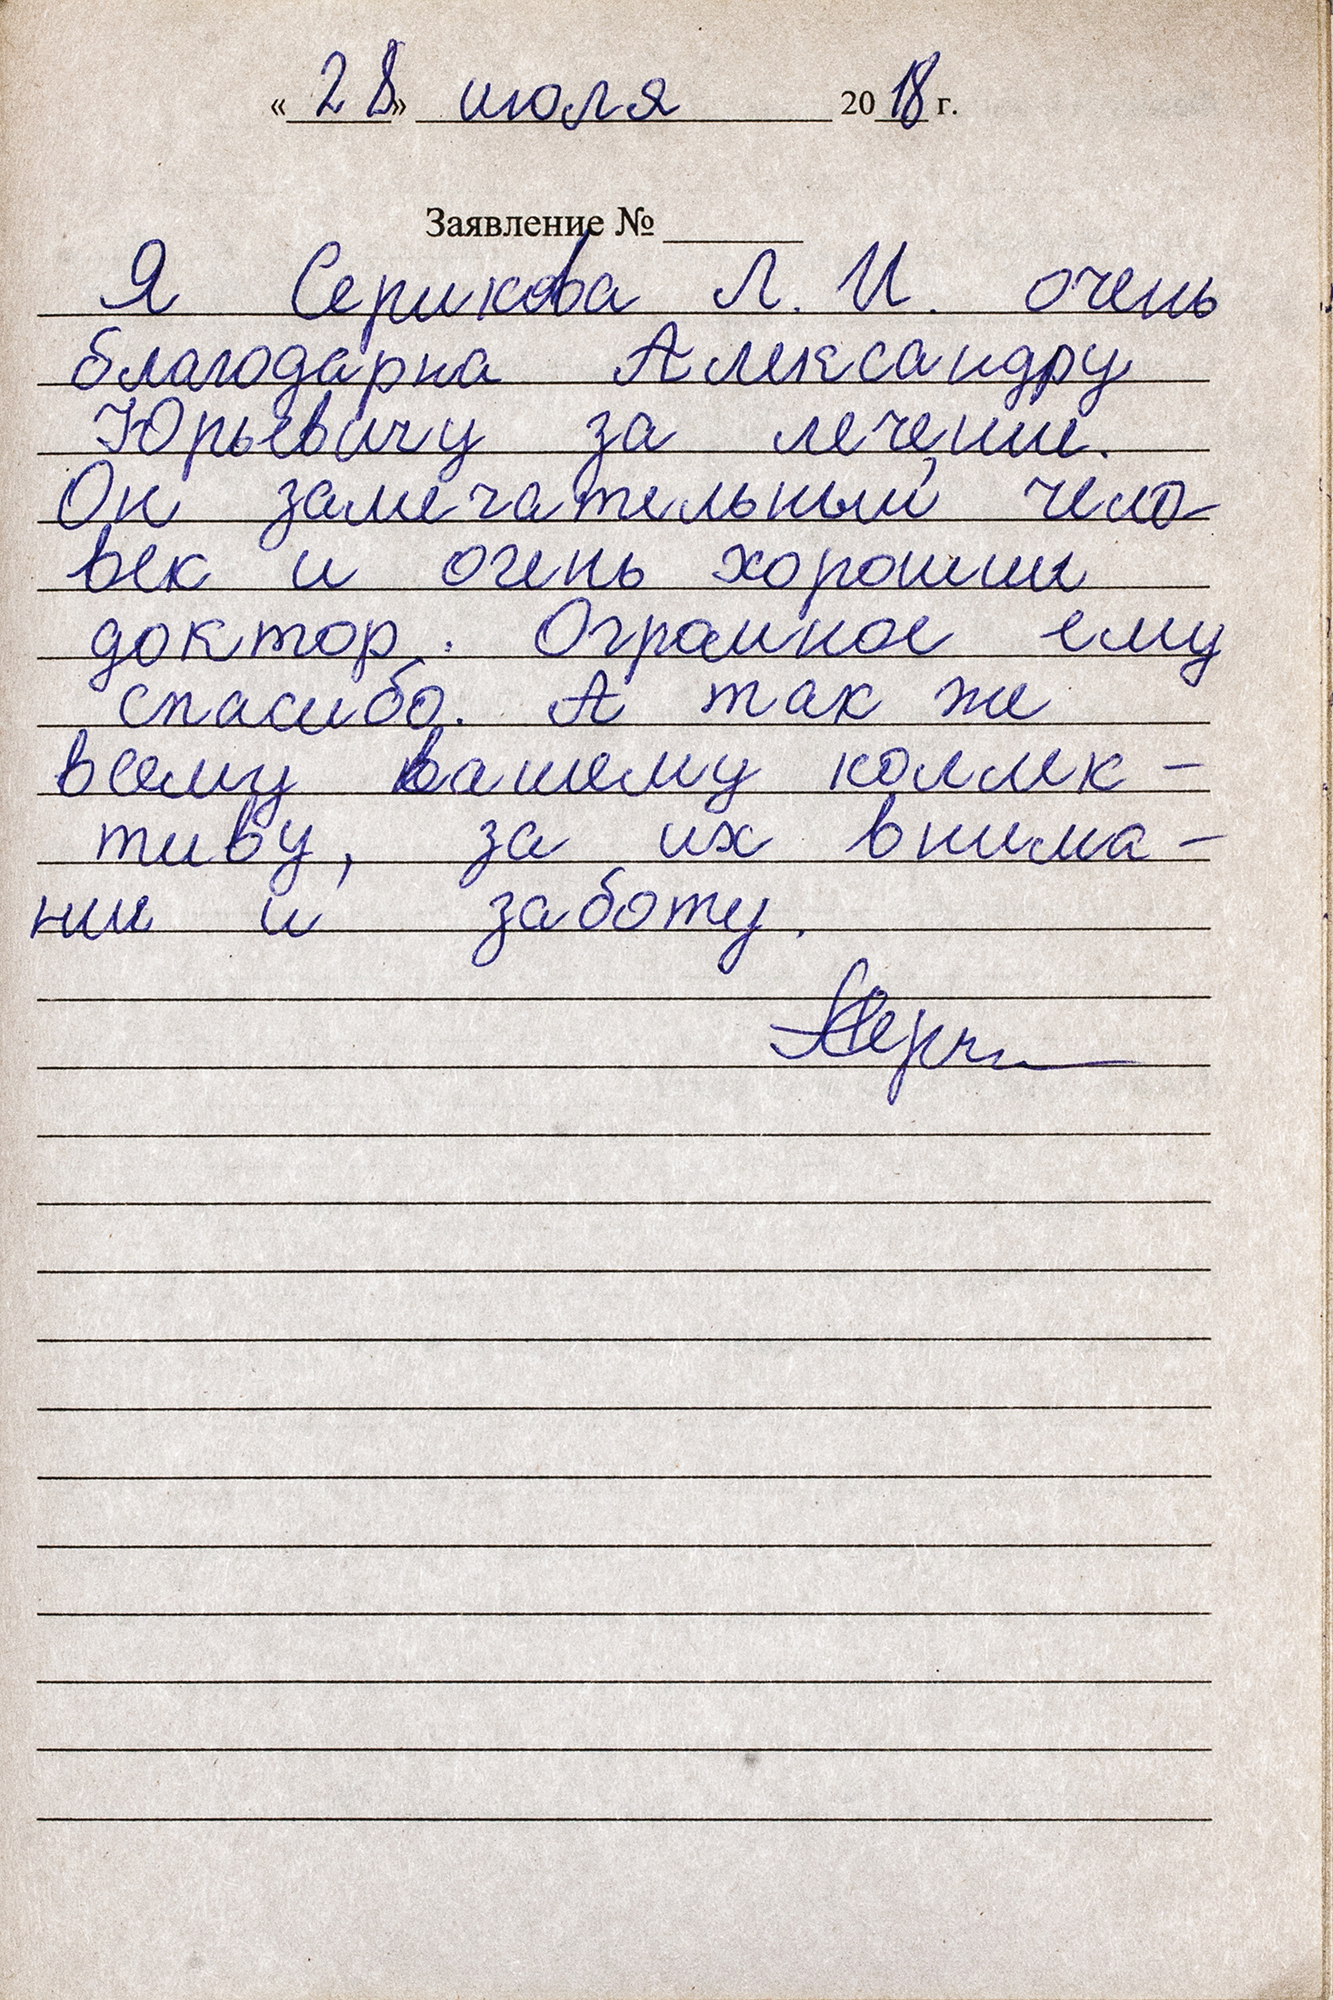 « 28 » июля 2018 г.
Заявление № ______
Я Серикова Л. И. очень
благодарна Александру
Юрьевичу за лечение.
Он замечательный чело-
век и очень хороший
доктор. Огромное ему
спасибо. А так же
всему вашему коллек-
тиву, за их внима-
ние и заботу.